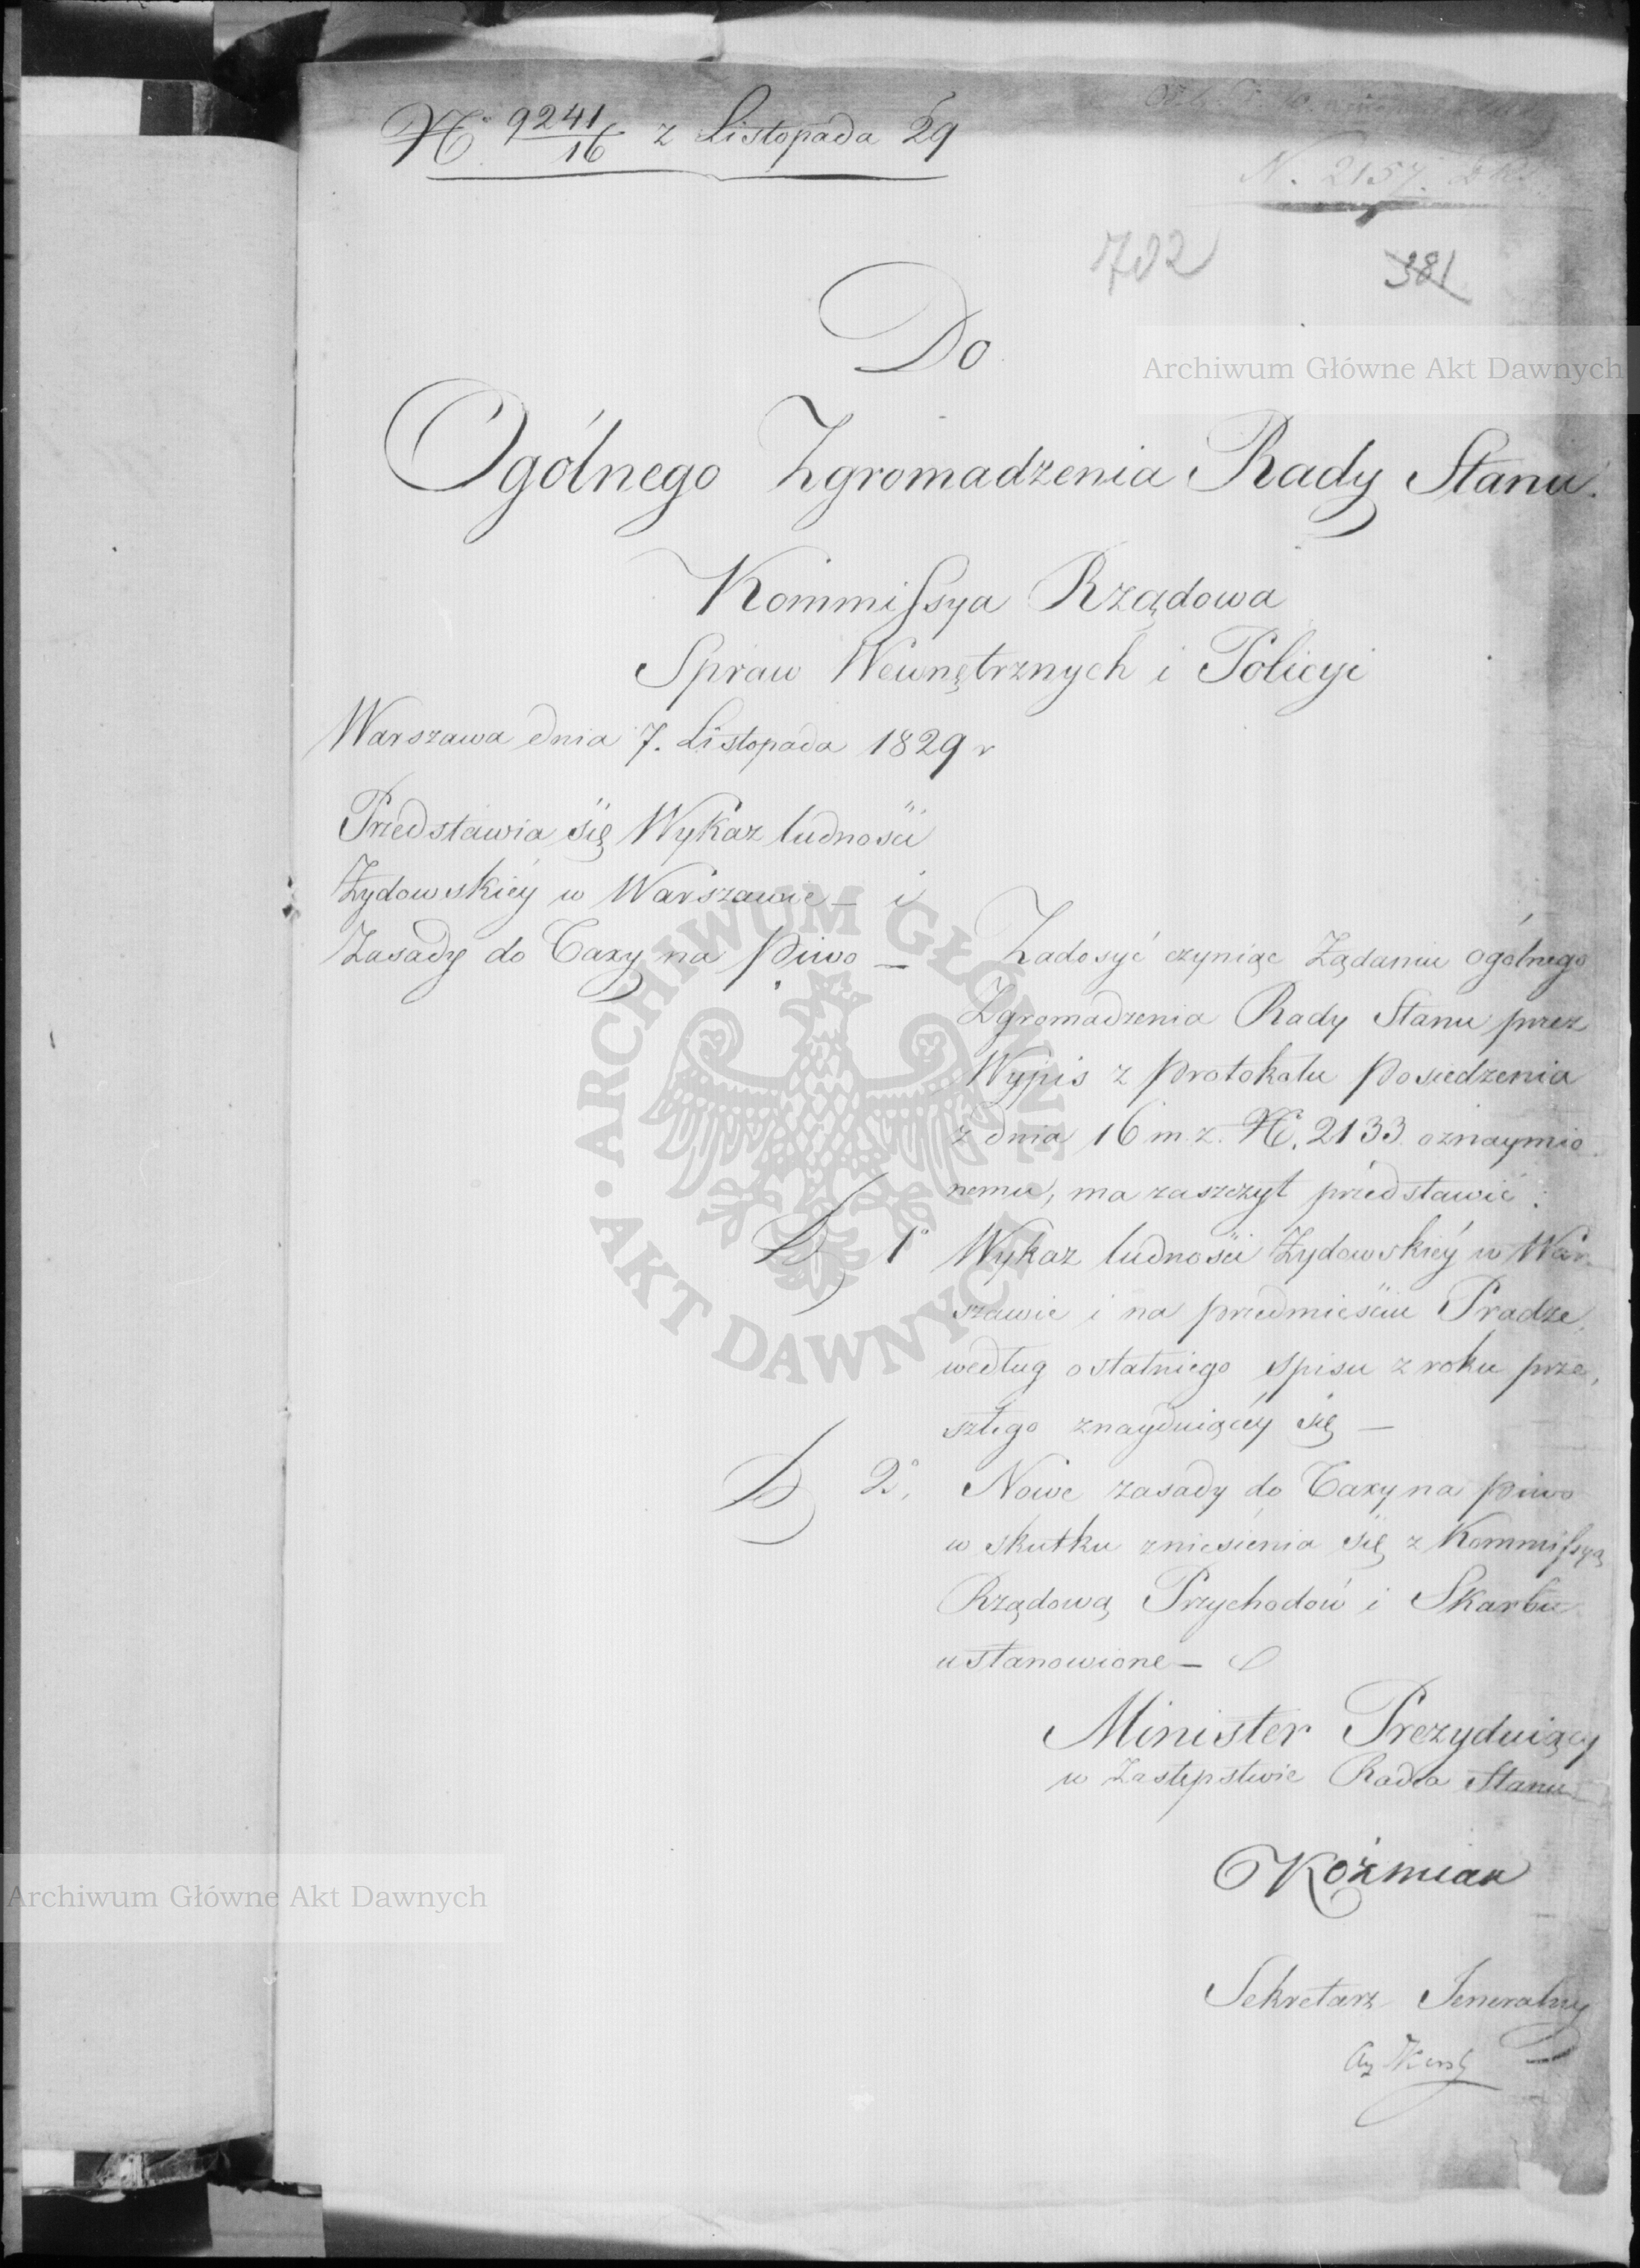 No 9241/16 z Listopada 29
N. 2157.
702
381
Do
Ogólnego Zgromadzenia Rady Stanu.
Kommissya Rządowa
Spraw Wewnętrznych i Policyi
Warszawa dnia 7. Listopada 1829 r
Przedstawia się Wykaz ludności
Żydowskiéy w Warszawie – i
Zasady do Taxy na Piwo –
Zadosyć czyniąc Żądaniu ogólnego
Zgromadzenia Rady Stanu przez
Wypis z Protokatu Posiedzenia
z dnia 16 m. z. No. 2133 oznaymio
nemu, ma zaszczyt przedstawić:
1o Wykaz ludności Żydowskiéy w War
szawie i na przedmieściu Pradze,
według ostatniego spisu z roku prze,
szłego znayduiącéy się –
2o. Nowe zasady do Taxy na piwo
w skutku zniesienia się z Kommissyą
Rządową Przychodów i Skarbu
ustanowione –
Minister Prezyduiący
w Zastępstwie Radca Stanu
Koźmian
Sekretarz Jeneralny
Archiwum Główne Akt Dawnych
ARCHIWUM GŁÓWNE · AKT DAWNYCH ·
Archiwum Główne Akt Dawnych